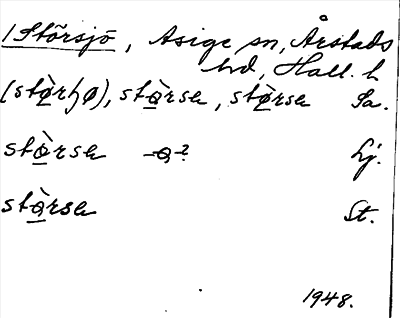 1 Störsjö, Asige sn, Årstads
hd, Hall. l.
(stø̀rɧø), stø̀rse, stø̀rse Sa.
stø̀rse -ø ? Lj.
stø̀rse St.
1948.